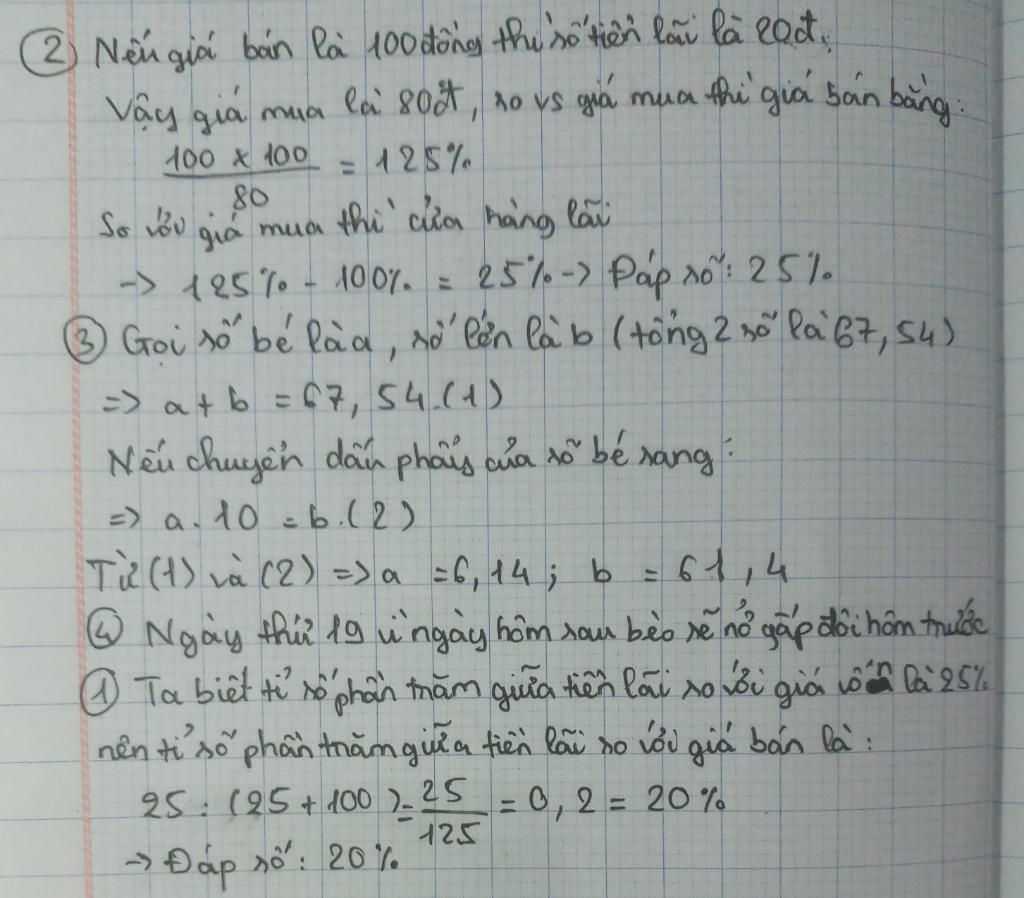 ② Nếu giá bán là 100 đồng thì số tiền lãi là 20đ.
Vậy giá mua là 80đ, so vs giá mua thì giá bán bằng:
100 x 100 / 80 = 125%
So với giá mua thì cửa hàng lãi
-> 125% - 100% = 25% -> Đáp số: 25%
③ Gọi số bé là a, số lớn là b (tổng 2 số là 67,54)
=> a + b = 67,54.(1)
Nếu chuyển dấu phẩy của số bé sang:
=> a.10 = b.(2)
Từ (1) và (2) => a = 6,14; b = 61,4
④ Ngày thứ 19 vì ngày hôm sau bèo sẽ nở gấp đôi hôm trước
① Ta biết tỉ số phần trăm giữa tiền lãi so với giá vốn là 25%
nên tỉ số phần trăm giữa tiền lãi so với giá bán là:
25 : (25 + 100) = 25/125 = 0,2 = 20%
-> Đáp số: 20%